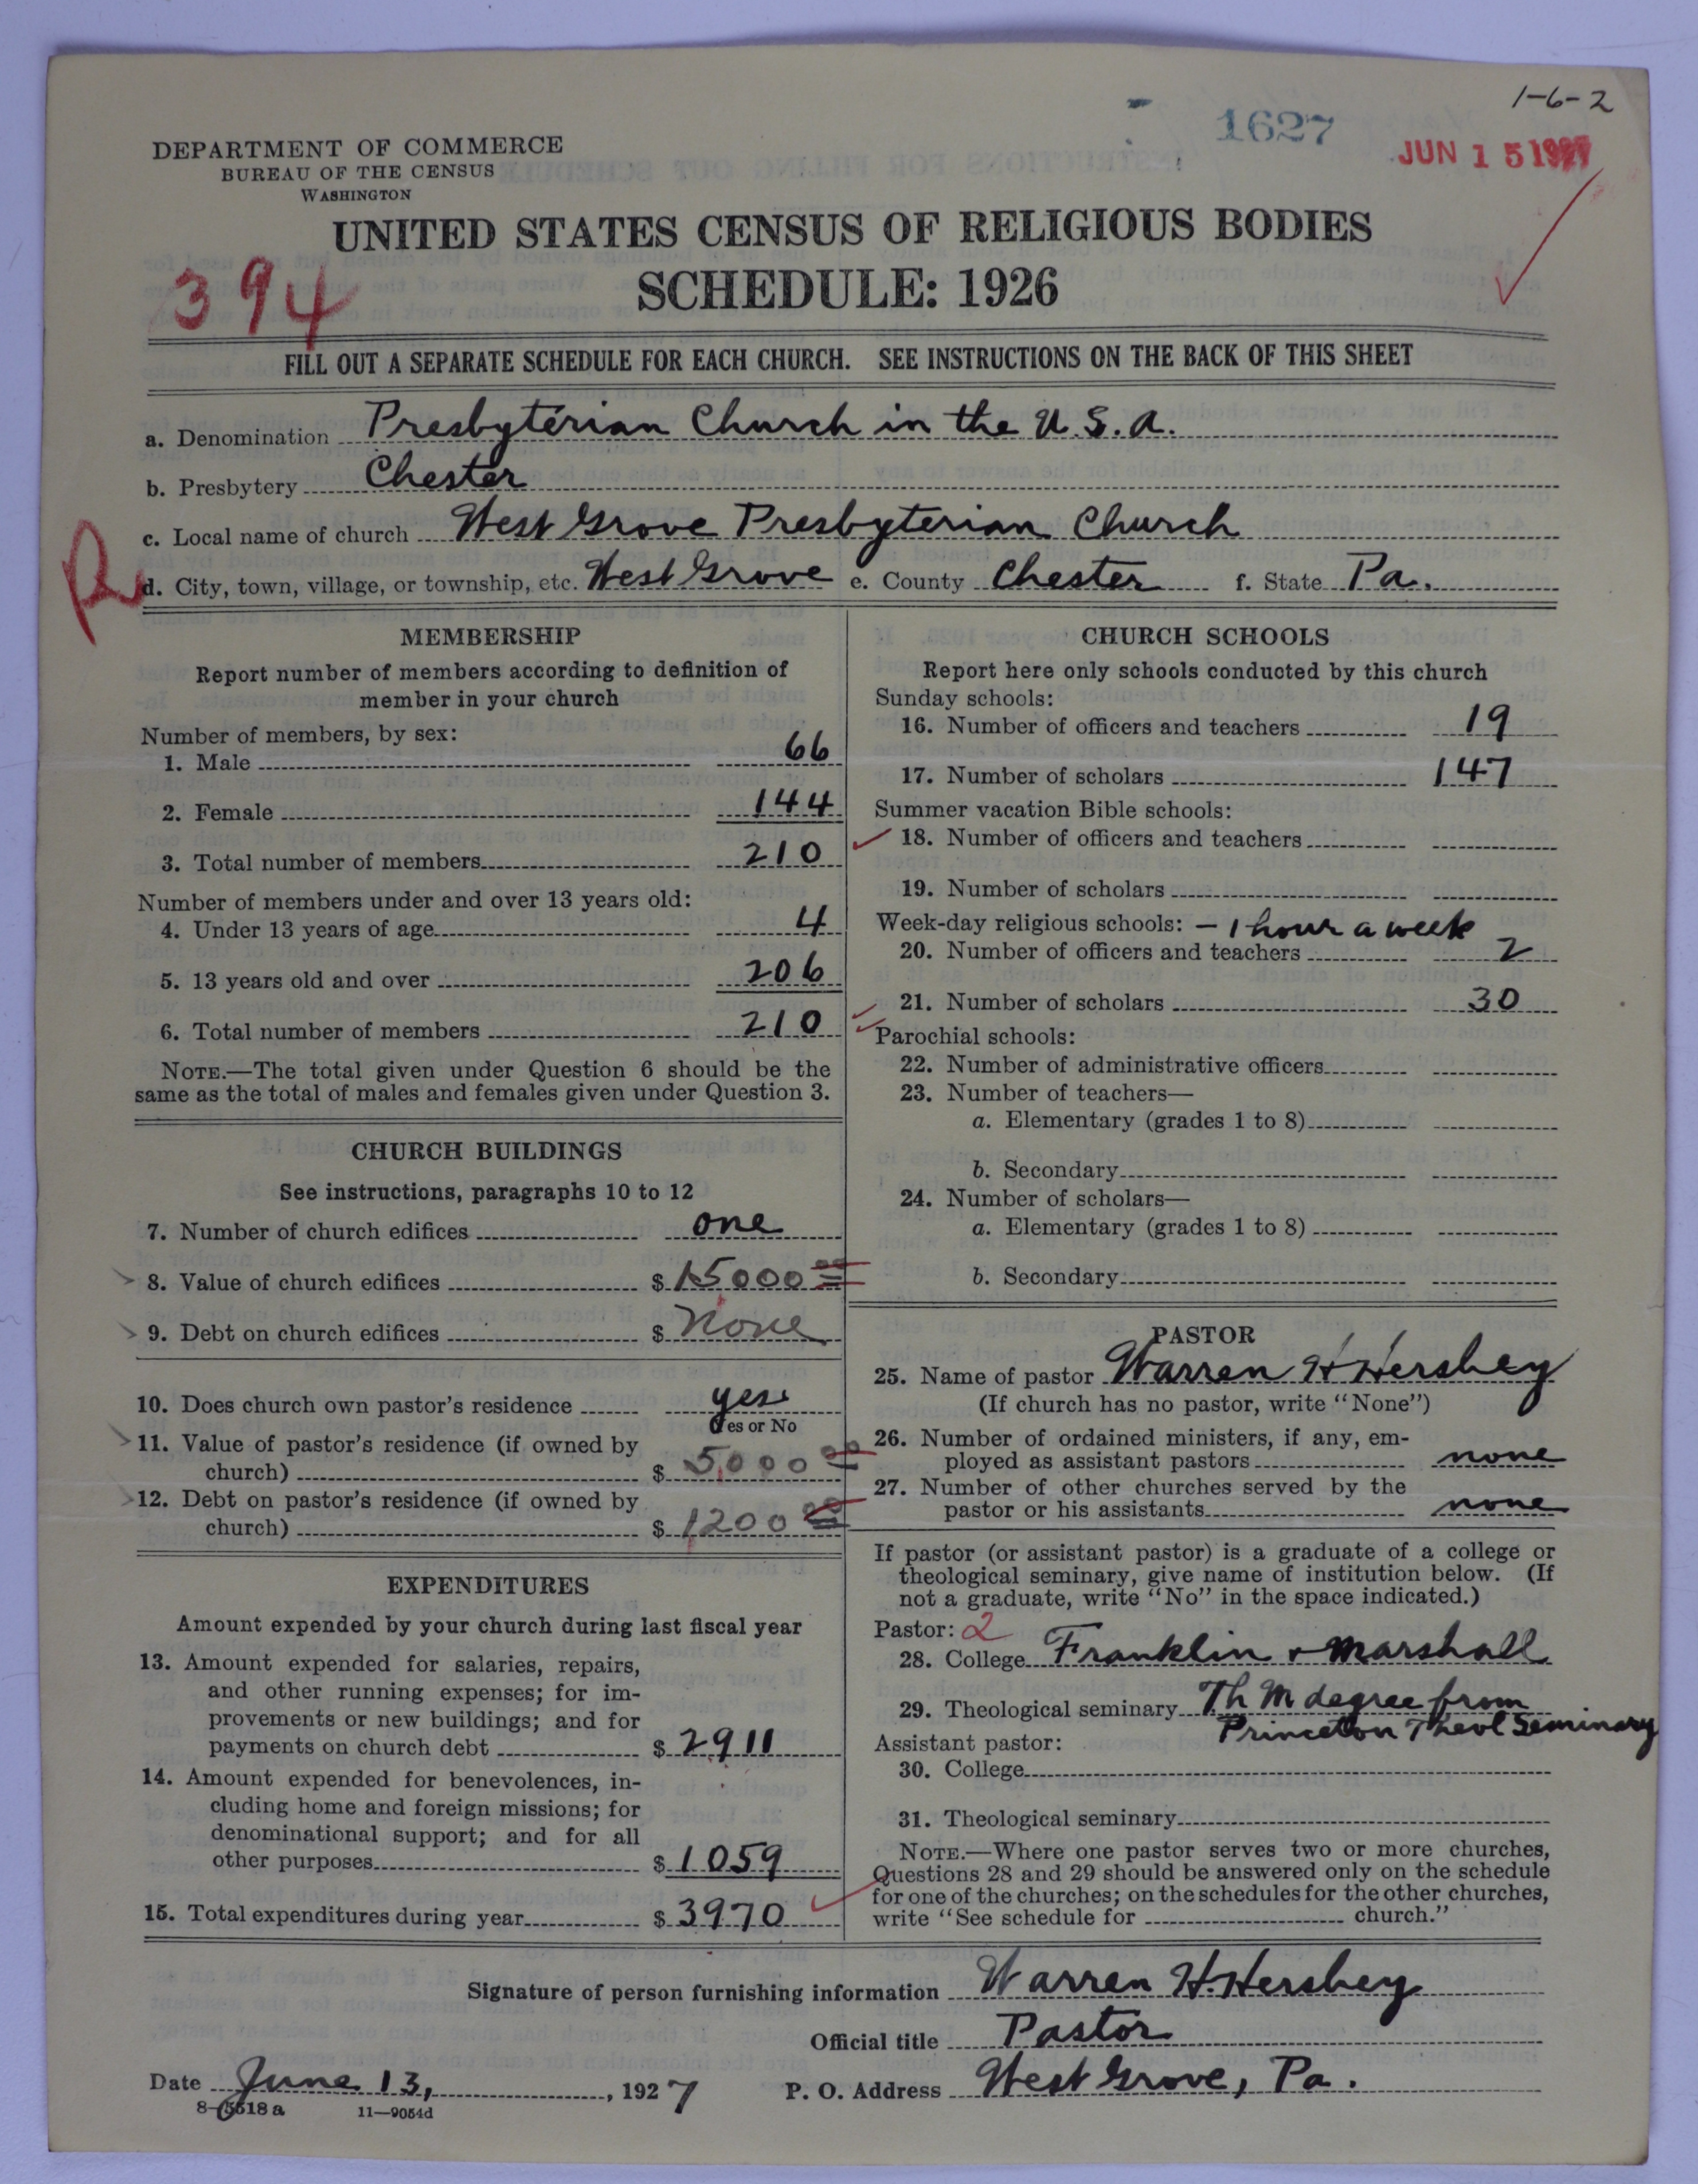 1-6-2
1627
JUN 15 1927
DEPARTMENT OF COMMERCE
BUREAU OF THE CENSUS
WASHINGTON
UNITED STATES CENSUS OF RELIGIOUS BODIES
394
SCHEDULE: 1926
FILL OUT A SEPARATE SCHEDULE FOR EACH CHURCH. SEE INSTRUCTIONS ON THE BACK OF THIS SHEET
a. Denomination Presbyterian Church in the U.S.A.
b. Presbytery Chester
c. Local name of church West Grove Presbyterian Church
d. City, town, village, or township, etc. West Grove e. County Chester f. State Pa.
MEMBERSHIP
Report number of members according to definition of
member in your church
Number of members, by sex:
1. Male 66
2. Female 144
3. Total number of members 210
Number of members under and over 13 years old:
4. Under 13 years of age 4
5. 13 years old and over 206
6. Total number of members 210
NOTE.—The total given under Question 6 should be the
same as the total of males and females given under Question 3.
CHURCH BUILDINGS
See instructions, paragraphs 10 to 12
7. Number of church edifices one
8. Value of church edifices $ 15000 00
9. Debt on church edifices $ None
10. Does church own pastor's residence yes
Yes or No
11. Value of pastor's residence (if owned by
church) $ 5000 00
12. Debt on pastor's residence (if owned by
church) $ 1200 00
EXPENDITURES
Amount expended by your church during last fiscal year
13. Amount expended for salaries, repairs,
and other running expenses; for im-
provements or new buildings; and for
payments on church debt $ 2911
14. Amount expended for benevolences, in-
cluding home and foreign missions; for
denominational support; and for all
other purposes $ 1059
15. Total expenditures during year $ 3970
CHURCH SCHOOLS
Report here only schools conducted by this church
Sunday schools:
16. Number of officers and teachers 19
17. Number of scholars 147
Summer vacation Bible schools:
18. Number of officers and teachers
19. Number of scholars
Week-day religious schools: – 1 hour a week
20. Number of officers and teachers 2
21. Number of scholars 30
Parochial schools:
22. Number of administrative officers
23. Number of teachers—
a. Elementary (grades 1 to 8)
b. Secondary
24. Number of scholars—
a. Elementary (grades 1 to 8)
b. Secondary
PASTOR
25. Name of pastor Warren H Hershey
(If church has no pastor, write "None")
26. Number of ordained ministers, if any, em-
ployed as assistant pastors none
27. Number of other churches served by the
pastor or his assistants none
If pastor (or assistant pastor) is a graduate of a college or
theological seminary, give name of institution below. (If
not a graduate, write "No" in the space indicated.)
Pastor: 2
28. College Franklin + Marshall
29. Theological seminary Th M degree from
Princeton Theol Seminary
Assistant pastor:
30. College
31. Theological seminary
NOTE.—Where one pastor serves two or more churches,
Questions 28 and 29 should be answered only on the schedule
for one of the churches; on the schedules for the other churches,
write "See schedule for church."
Signature of person furnishing information Warren H. Hershey
Official title Pastor
Date June 13, 1927 P. O. Address West Grove, Pa.
8-5518a 11—9054d